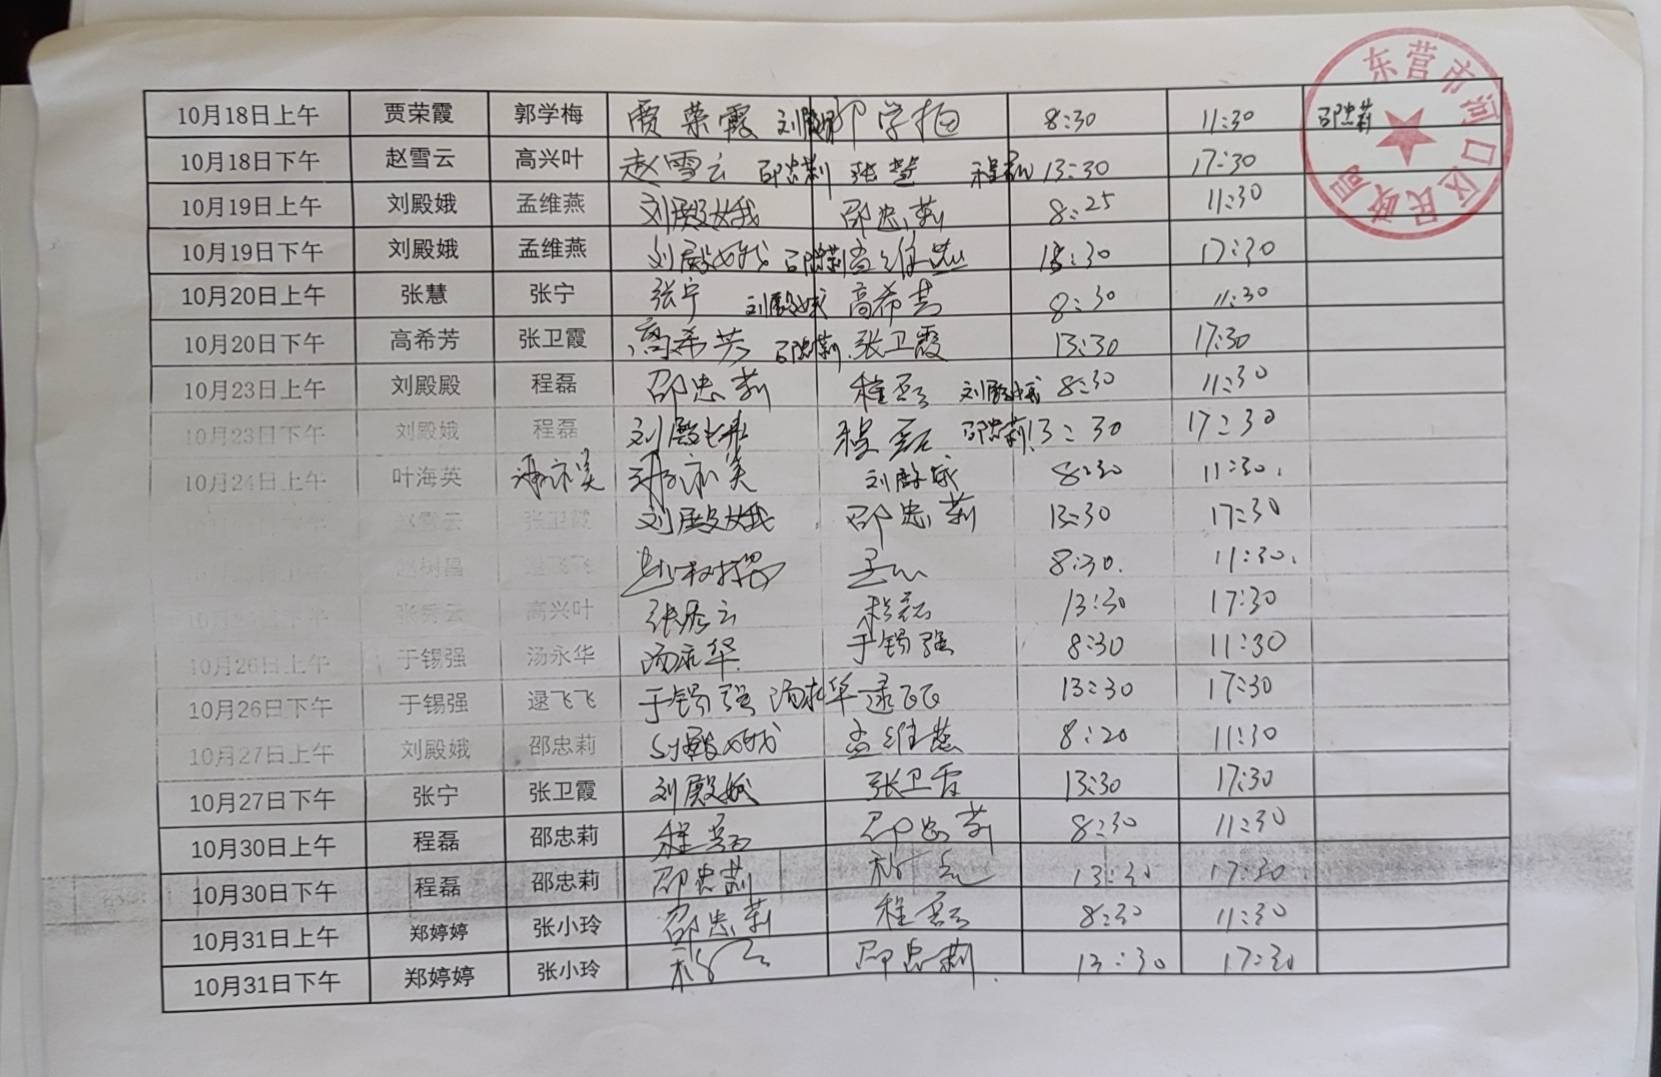 东营市河口区民政局
10月18日上午 贾荣霞 郭学梅 贾荣霞 郭学梅 8:30 11:30 邵忠莉
10月18日下午 赵雪云 高兴叶 赵雪云 邵忠莉 张慧 程磊 13:30 17:30
10月19日上午 刘殿娥 孟维燕 刘殿娥 邵忠莉 8:25 11:30
10月19日下午 刘殿娥 孟维燕 刘殿娥 邵忠莉 孟维燕 13:30 17:30
10月20日上午 张慧 张宁 张宁 刘殿娥 高希芳 8:30 11:30
10月20日下午 高希芳 张卫霞 高希芳 邵忠莉 张卫霞 13:30 17:30
10月23日上午 刘殿殿 程磊 邵忠莉 程磊 刘殿娥 8:30 11:30
10月23日下午 刘殿娥 程磊 刘殿娥 程磊 邵忠莉 13:30 17:30
10月24日上午 叶海英 刘殿娥 8:30 11:30.
赵雪云 张卫霞 刘殿娥 邵忠莉 13:30 17:30
赵树昌 逯飞飞 8:30. 11:30.
张秀云 高兴叶 张秀云 程磊 13:30 17:30
10月26日上午 于锡强 汤永华 汤永华 于锡强 8:30 11:30
10月26日下午 于锡强 逯飞飞 于锡强 汤永华 逯飞飞 13:30 17:30
10月27日上午 刘殿娥 邵忠莉 刘殿娥 孟维燕 8:20 11:30
10月27日下午 张宁 张卫霞 刘殿娥 张卫霞 13:30 17:30
10月30日上午 程磊 邵忠莉 程磊 邵忠莉 8:30 11:30
10月30日下午 程磊 邵忠莉 邵忠莉 程磊 13:30 17:30
10月31日上午 郑婷婷 张小玲 邵忠莉 程磊 8:30 11:30
10月31日下午 郑婷婷 张小玲 程磊 邵忠莉 13:30 17:30